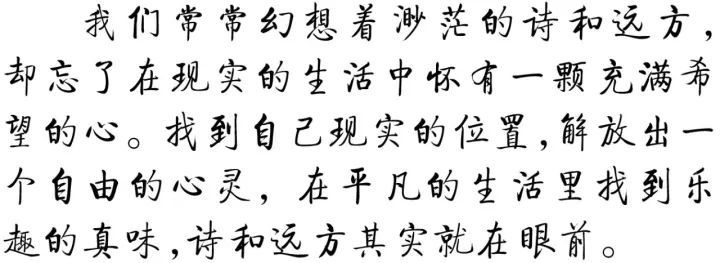 我们常常幻想着渺茫的诗和远方，
却忘了在现实的生活中怀有一颗充满希
望的心。找到自己现实的位置，解放出一
个自由的心灵，在平凡的生活里找到乐
趣的真味，诗和远方其实就在眼前。